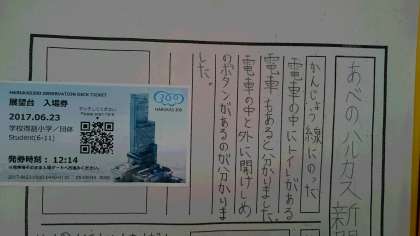 HARUKAS300 OBSERVATION DECK TICKET
展望台 入場券
2017.06.23
学校得割小学/団体
Student(6-11)
発券時刻: 12:14
HARUKAS 300
あべのハルカス新聞
かんじょう線にのった
電車の中にトイレがある
電車もあると分かりました
電車の中と外に開けしめ
のボタンがあるのが分かりま
した。